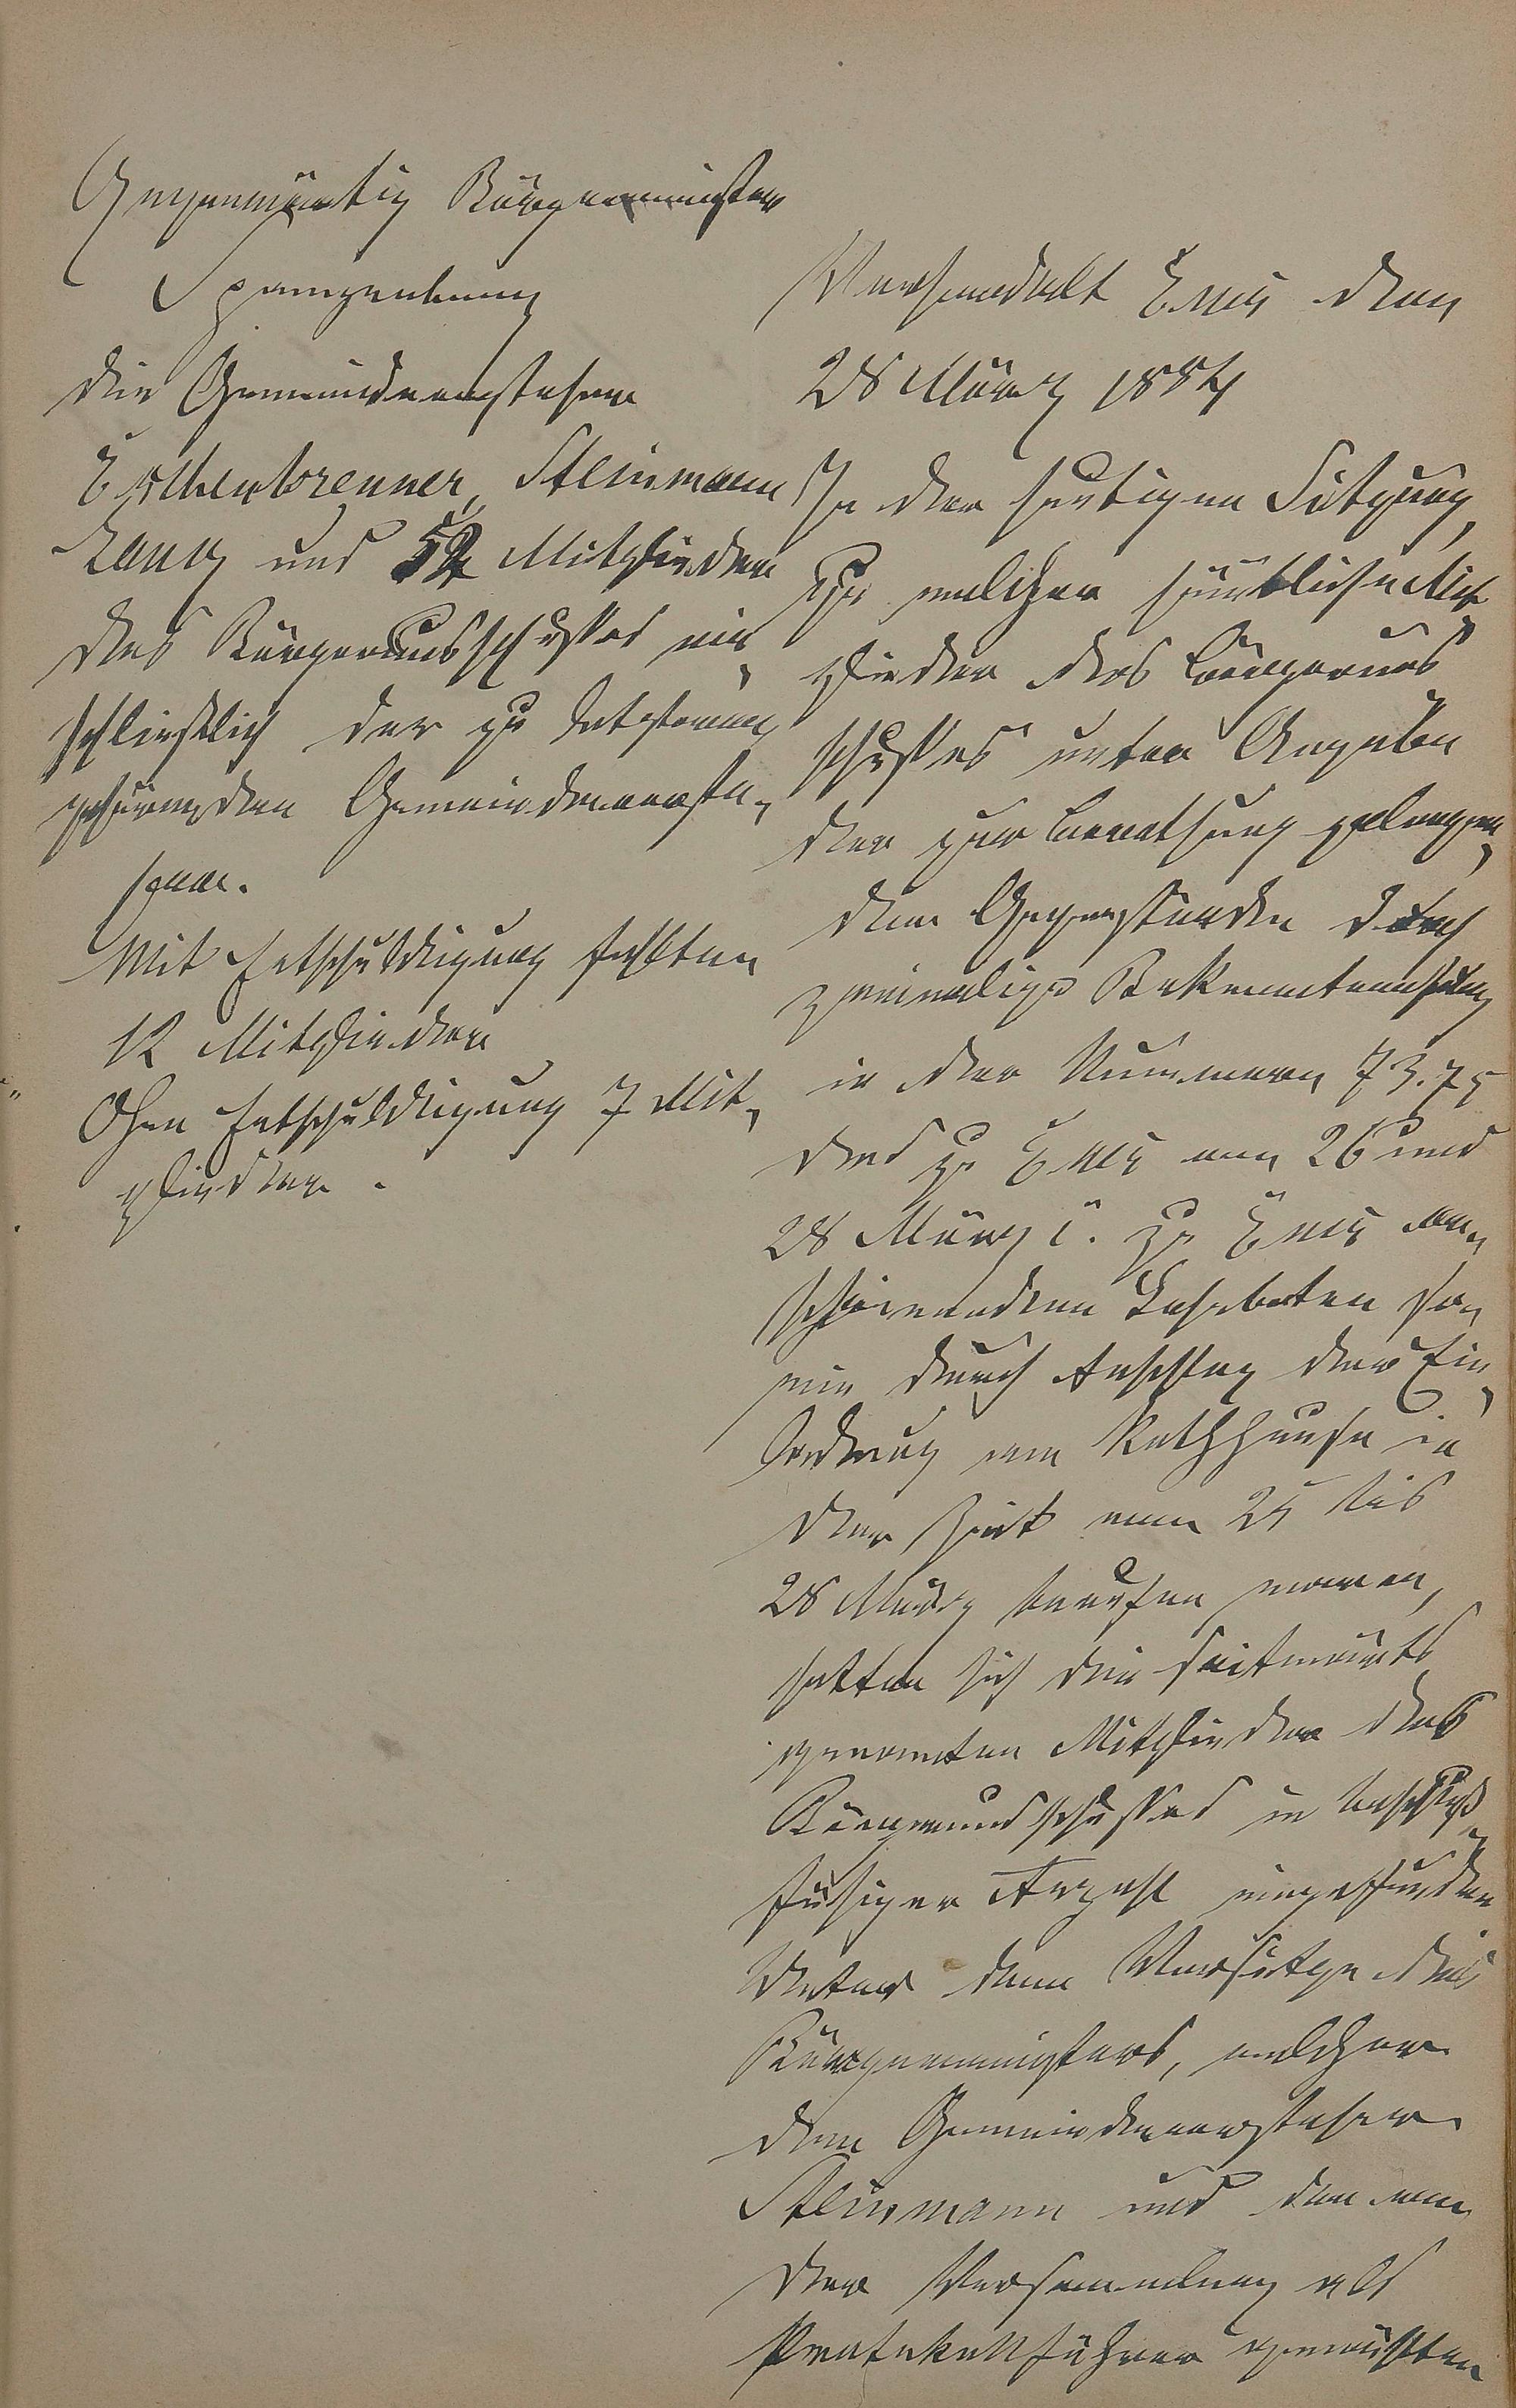 Gegenwärtig Bürgermeister
Spangenberg
die Gemeindevorsteher
Eschenbrenner, Steinmann
Lang und 52 Mitglieder
des Bürgerausschußes ein,
schließlich der zu letzteren
gehörenden Gemeindevorste,
her.
Mit Entschuldigung fehlten
12 Mitglieder
Ohne Entschuldigung 7 Mit,
glieder.
Verhandelt Ems den
28 März 1884
In der heutigen Sitzung,
zu welcher sämtliche Mit
glieder des Bürgeraus
schußes unter Angabe
der zur Berathung gelangen,
den Gegenstände durch
zweimalige Bekanntmachung
in der Nummern 73. 75
des zu Ems am 26 und
28 März zu Ems er,
scheinenden Lahnboten so,
wie durch Anschlag der Ein,
ladung am Rathhause in
der Zeit vom 25 bis
28 März berufen waren,
hatten sich die seitwärts
genannten Mitglieder des
Bürgerausschußes in beschluß,
fähiger Anzahl eingefunden
Unter dem Vorsitze des
Bürgermeisters, welcher
den Gemeindevorsteher
Steinmann und den von
der Versammlung als
Protokollführer gewählten